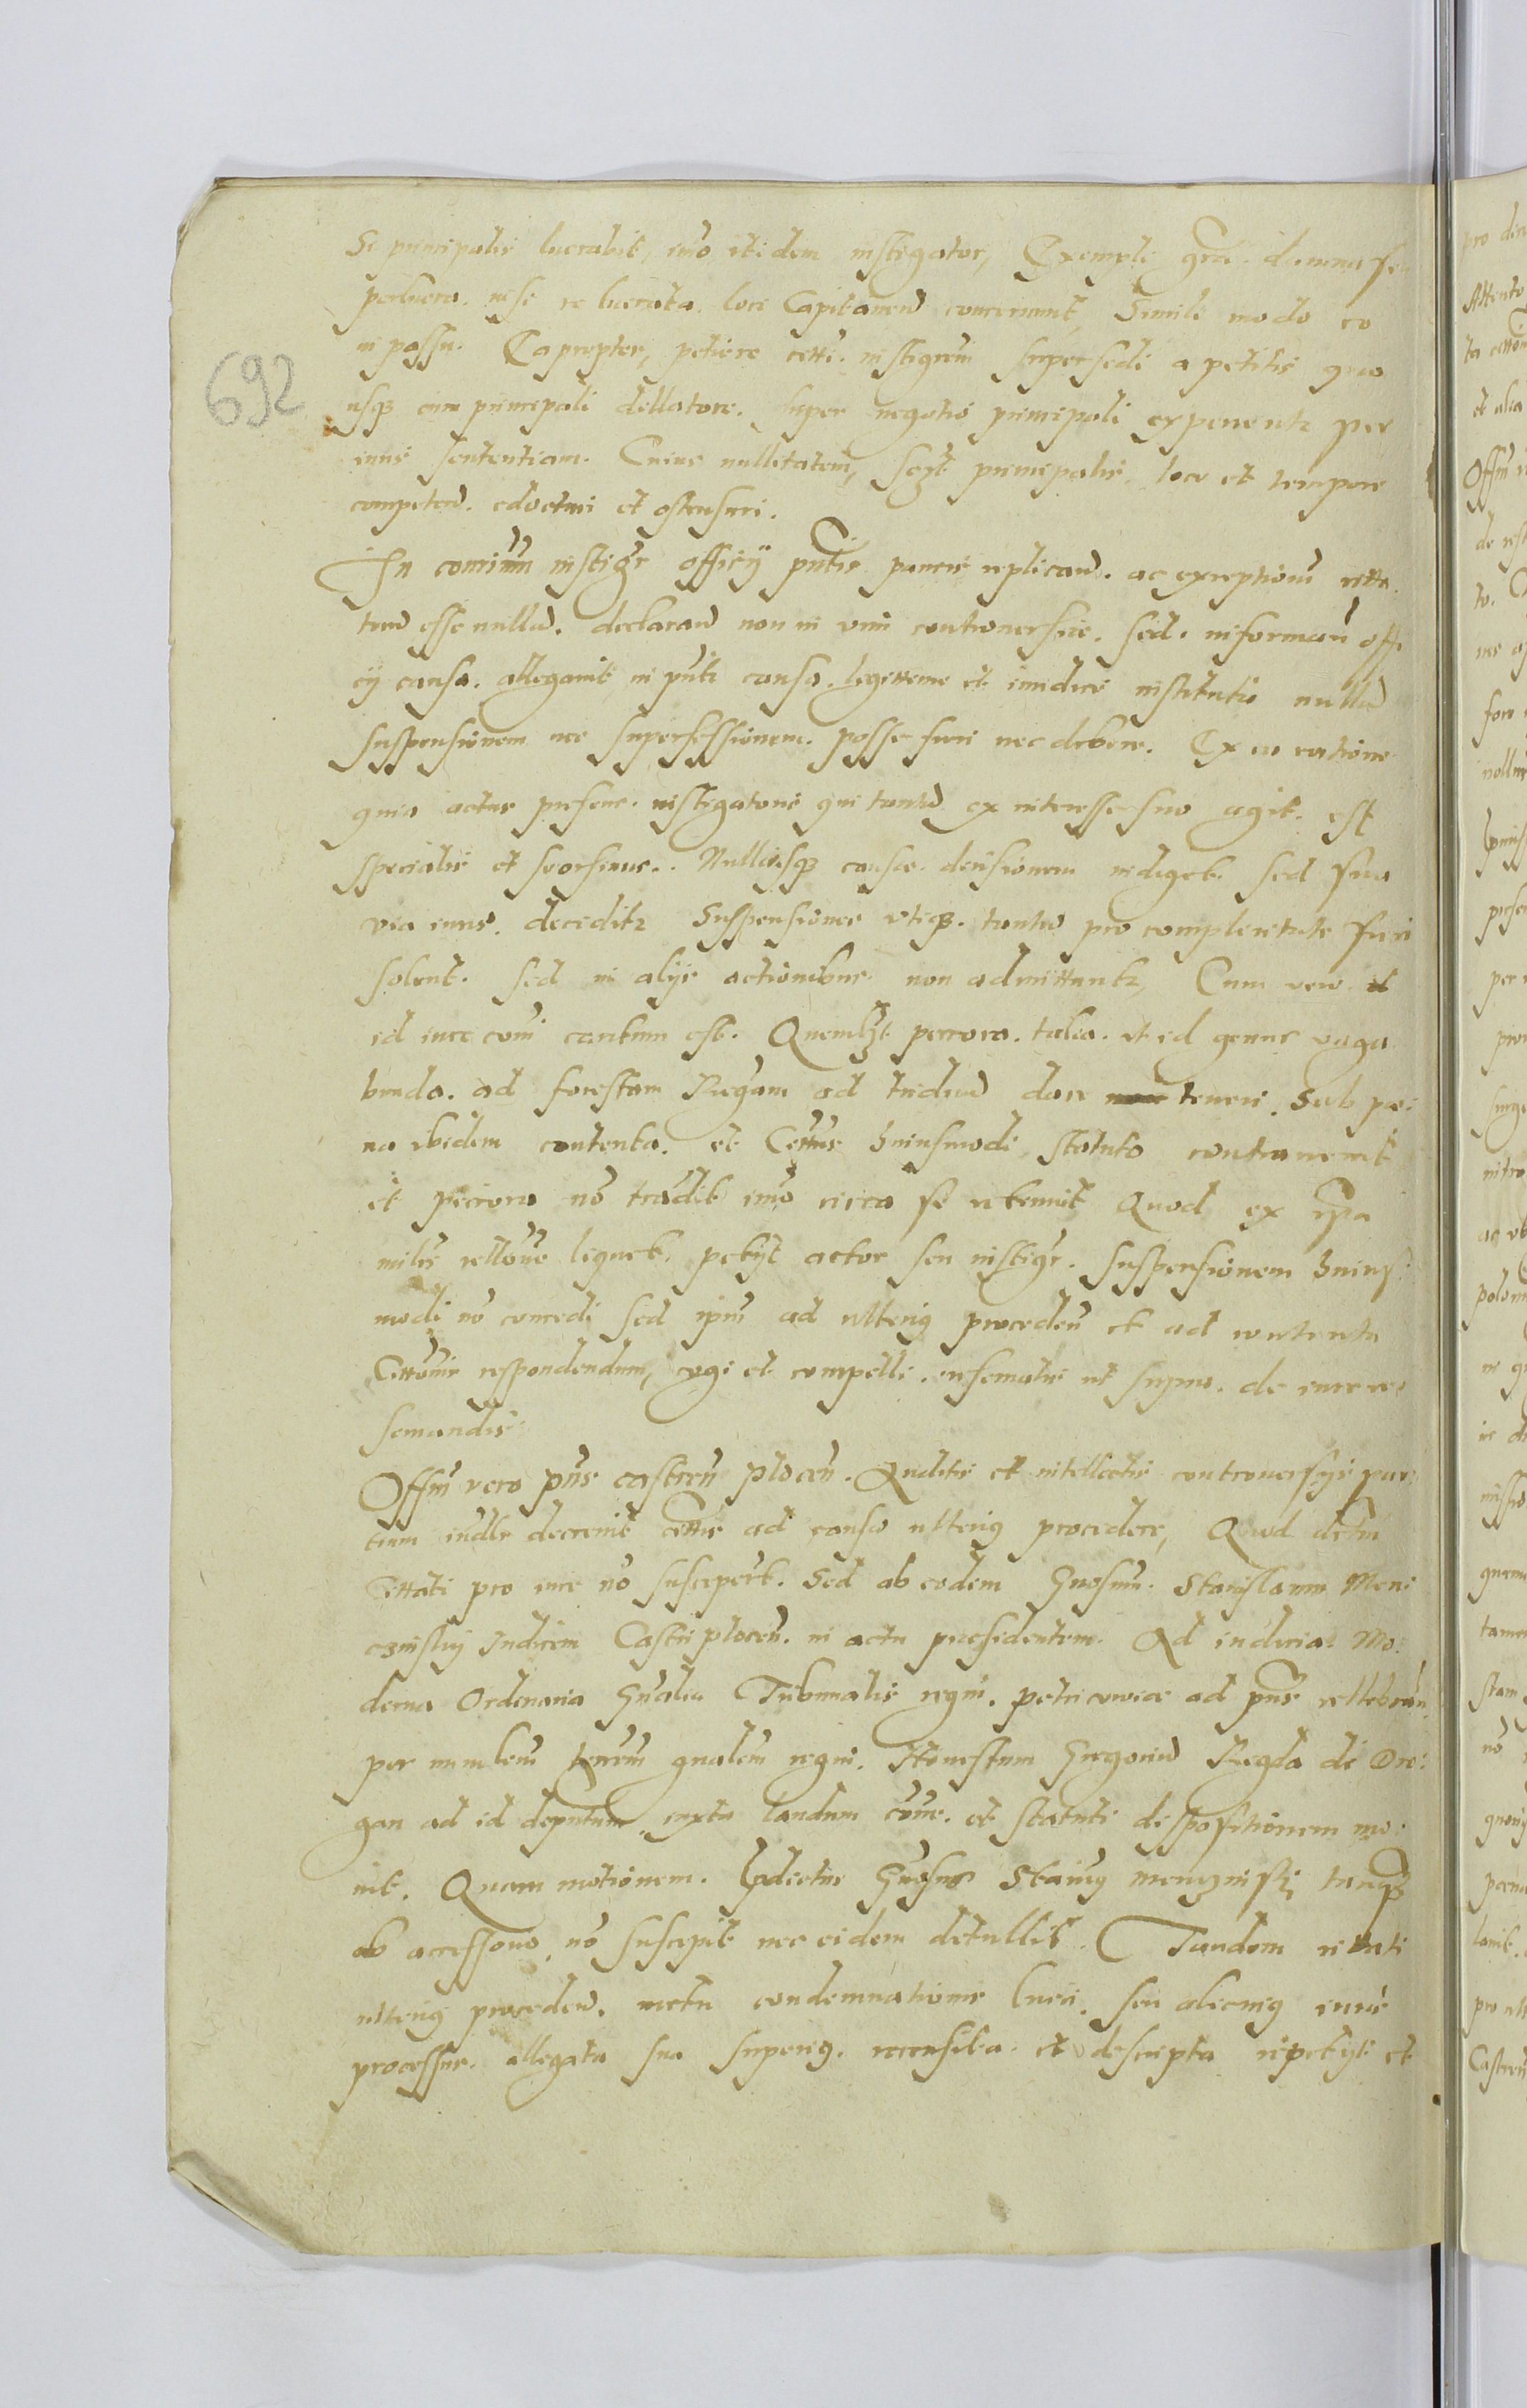 Si principalis lucrabit, imo itidem instigator, Exempli gra. damna seu
perlucra. nisi re lucrata. loci Capitaneu concernunt, Simili modo eo
in passu. Eapropter, petiere citti. instigrem supersedi a petitis quo
usq cum principali dellatore. super negotio principali experientr per
iuris sententiam. Cuius nullitatem, principalis. loco et tempore
competen. edocturi et ostensuri.
In contriuu instigr officÿ pntis paucis replicand. ac exceptionu citta
toru esse nulla. declarand non in vim controversiae. sed. informan offi
cÿ causa. allegavit in pnti causa. legitteme et iuridice instituta nulla
suspensionem nec supersessionem. posse fieri nec debere. Ex eo ratione
quia actus presens. instigatoris qui tantu ex interesse suo agit. est
specialis et seorsivus. Nulliusq causae decisionem indiget. sed sua
via iuris. deciditr Suspensiones utiq. tantu pro complenitate fieri
solent. sed in alijs actionibus non admittuntr, Cum vero et
id iure comi cautum est. Quemlzt peccora. talia. et id genus vaga
bunda. ad forestam Regiam ad triduu dare teneri. Sub pae
na ibidem contenta. et Cittus huiusmodi statuto contravenit
et peccora no tradit imo circa se retinuit Quod ex ipsa
milis rellone liquet. petyt actor seu instigr. suspensionem huius
modi no concedi sed ipm ad ulterig proceden et ad contenta
Cittonis respondendum, cogi et compelli. in sematis ut supra. de iure re
semandis
Offm vero pns castren plocen. Auditis et intellectis controversÿs par
tium indlr decrevit cittis ad causa ulterig procedere, Quod decretu
Cittati pro iure no susceperut. Sed ab eodem Gnosum. Stanislaum Men
czinskij Iudicem Castri plocen. in actu presidentem. Ad iudicia Mo
derna Ordinaria Gnalia Tribunalis regni. petricoviae ad pns cellebran.
per qualem regni. Honestum Gregoriu Regda de Dro
gan ad id deputum iuxta laudum conve. et statuti dispositionem mo
vit. Quam motionem. pdictus Gnosus Stanisg menczinski tanq
ab accessorio no suscepit nec eidem detullit. Tandem cittati
ulterig proceden. metu condemnationis lucri. seu alicuig iuris
processus. allegata sua superig. recensita et descripta repetyt et
692